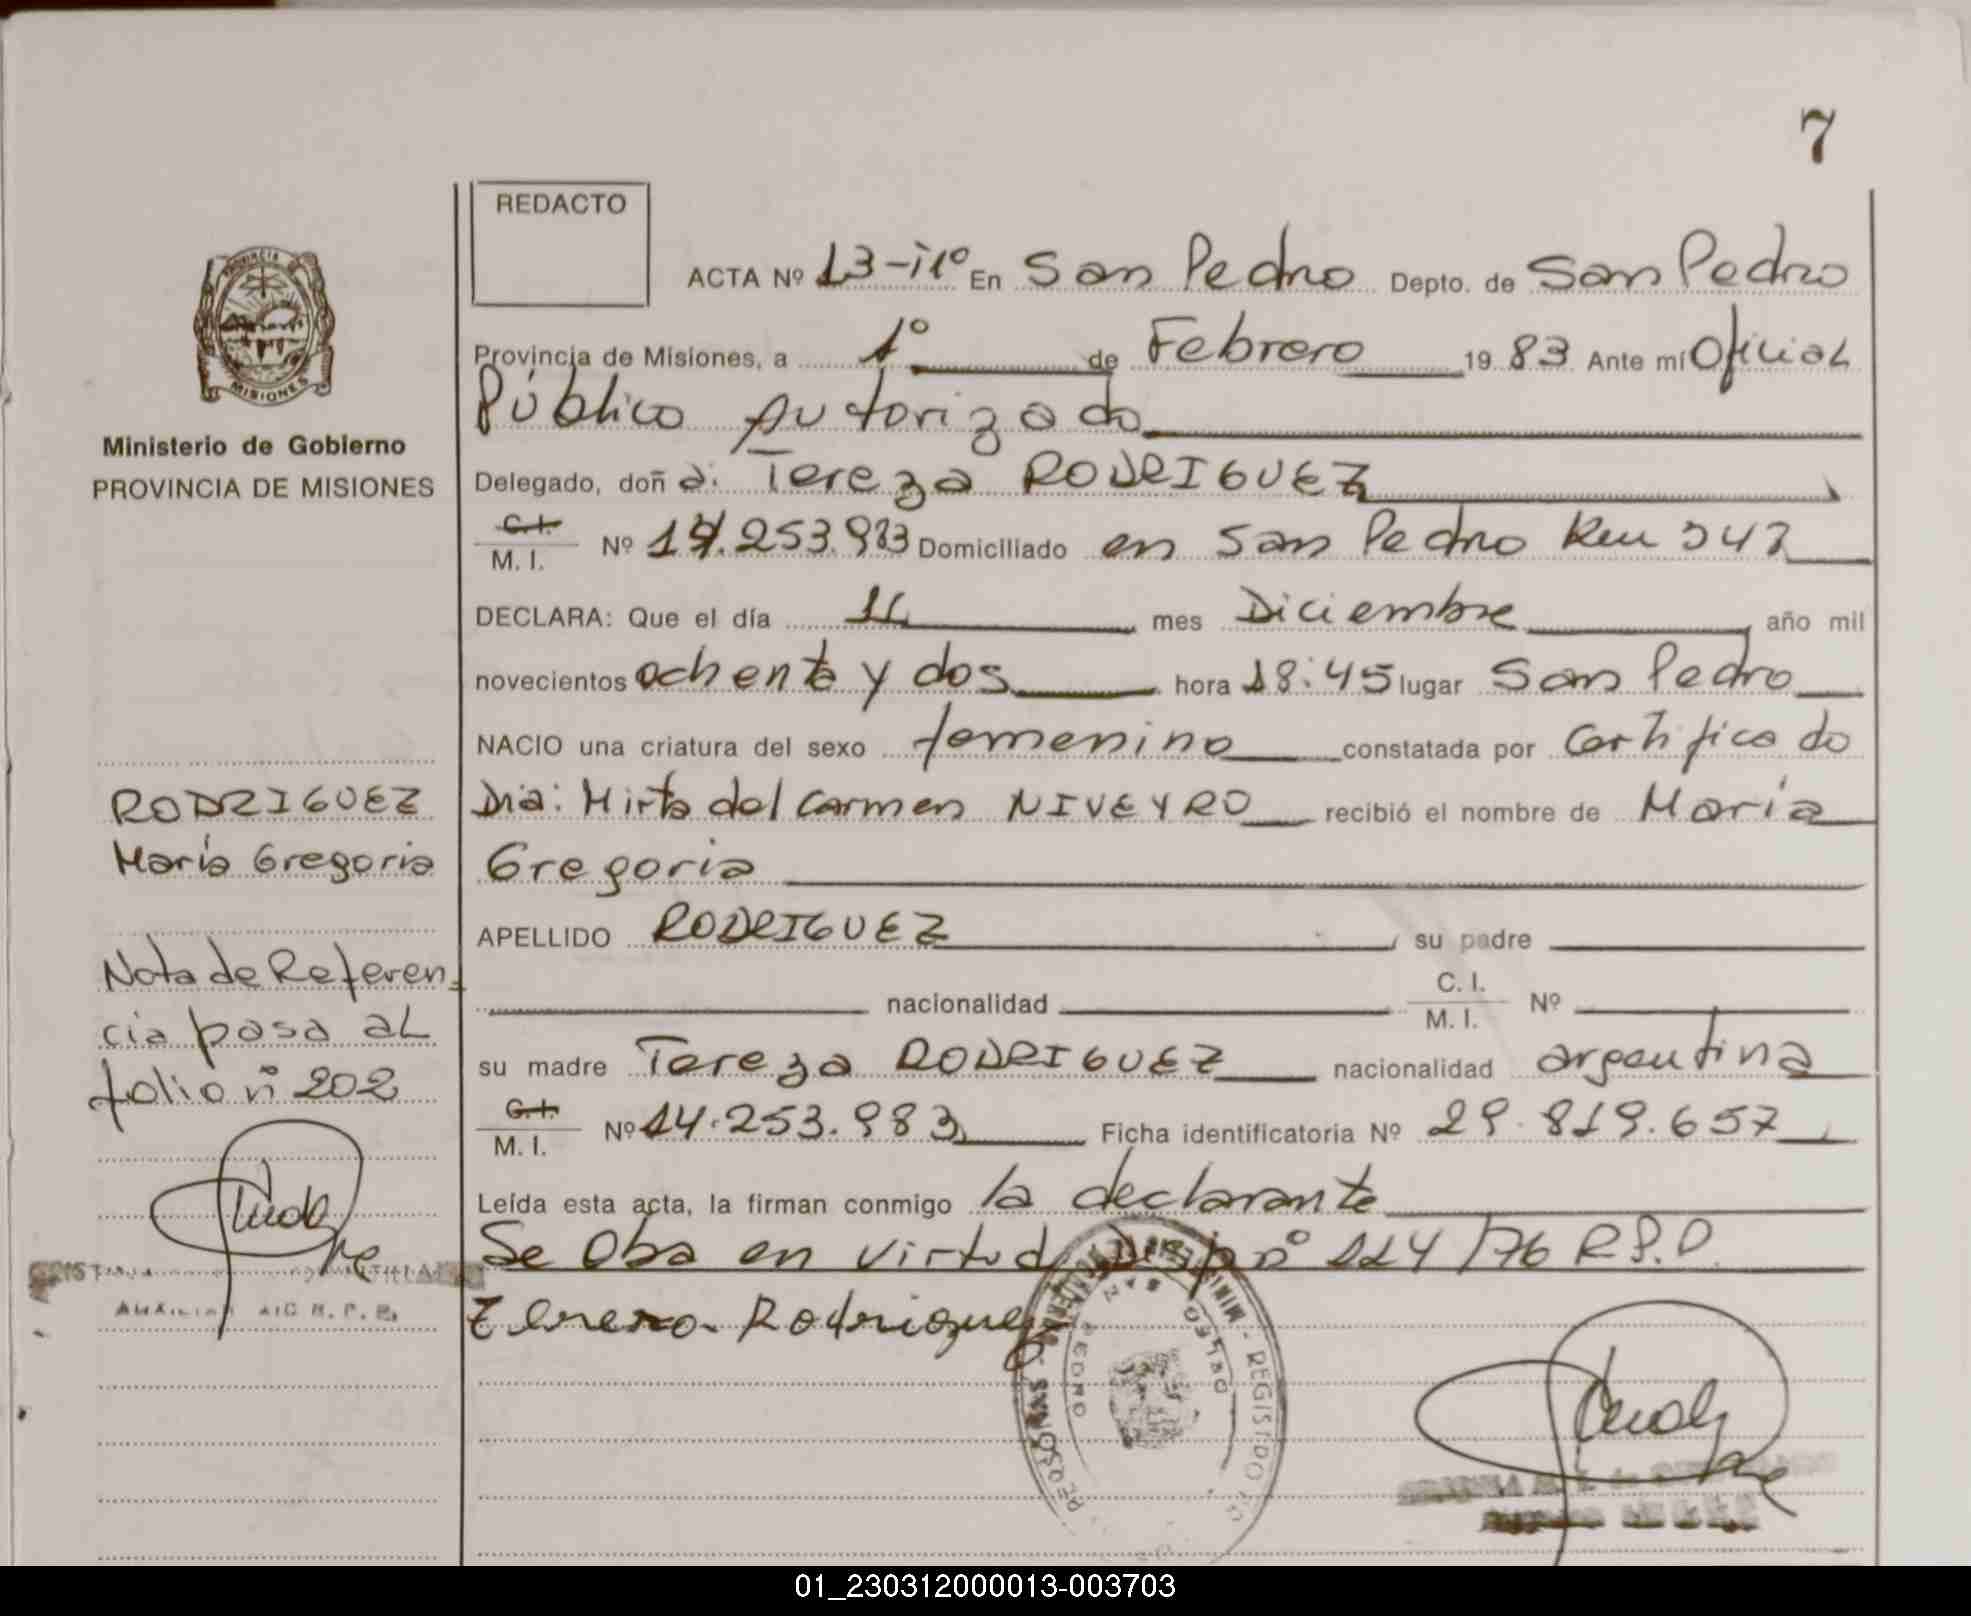 7
REDACTO
ACTA Nº 13-iº En San Pedro Depto. de San Pedro
Provincia de Misiones, a 1º de Febrero 1983 Ante mí Oficial
Público Autorizado
Delegado, doña: Tereza RODRIGUEZ
C.I. M.I. Nº 14.253.983 Domiciliado en San Pedro Km 342
DECLARA: Que el día mes Diciembre año mil
novecientos ochenta y dos hora 18:45 lugar San Pedro
NACIO una criatura del sexo femenino constatada por Certificado
Dra: Mirta del Carmen NIVEYRO recibió el nombre de María
Gregoria
APELLIDO RODRIGUEZ su padre
nacionalidad C.I. M.I. Nº
su madre Tereza RODRIGUEZ nacionalidad argentina
C.I. M.I. Nº 14.253.983 Ficha identificatoria Nº 29.819.657
Leída esta acta, la firman conmigo la declarante
Se Oba en virtud Disp nº 114/76 R.P.D.
Tereza Rodriguez
PROVINCIA
MISIONES
Ministerio de Gobierno
PROVINCIA DE MISIONES
RODRIGUEZ
María Gregoria
Nota de Referen-
cia pasa al
folio nº 202
REGISTRO
PERSONAS
SAN PEDRO
01_230312000013-003703